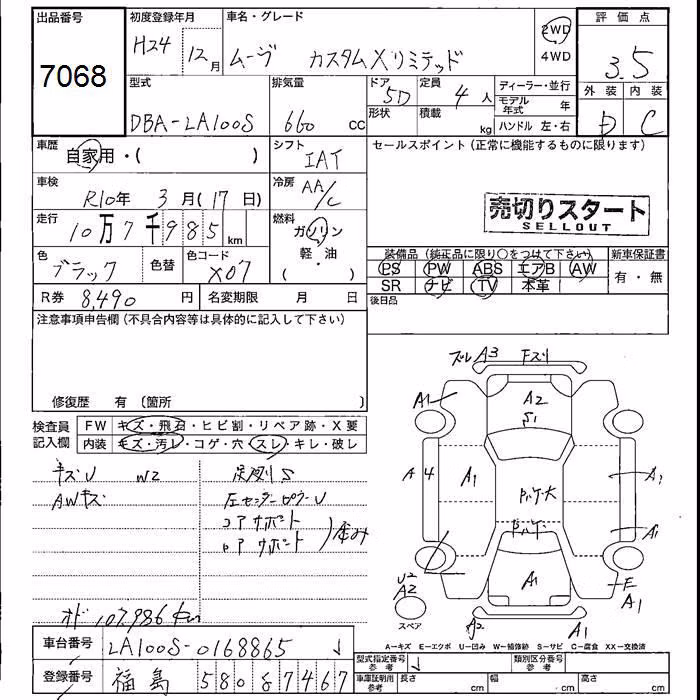 出品番号 初度登録年月 車名・グレード 評価点
7068 H24 12月 ムーヴ カスタムXリミテッド 2WD 4WD 3.5
型式 排気量 ドア 定員 ディーラー・並行 外装 内装
DBA-LA100S 660cc 5D 4人 モデル年式 年 D C
形状 積載 kg ハンドル 左・右
車歴 自家用・( ) シフト IAT セールスポイント(正常に機能するものに限ります)
車検 R10年 3月(17日) 冷房 AA/C
走行 10万7千985km 燃料 ガソリン・軽油 ( )
売切りスタート
SELLOUT
色 ブラック 色替 色コード X07
装備品(純正品に限り〇をつけて下さい) 新車保証書
PS PW ABS エアB AW 有・無
SR ナビ TV 本革
R券 8,490円 名変期限 月 日 後日品
注意事項申告欄(不具合内容等は具体的に記入して下さい)
修復歴 有(箇所
検査員記入欄 FW キズ・飛石・ヒビ割・リペア跡・X要
内装 キズ・汚レ・コゲ・穴・スレ・キレ・破レ
キズU W2
AWキズ
左センターピラーU
コアサポート
ロアサポート
オド 107,986km
A3 Fスリ
A1 A2
S1
A4 A1 A1
A1
A1
U2
A2
E
A1
スペア A2 A1
A-キズ E-エクボ U-凹み W-補修跡 S-サビ C-腐食 XX-交換済
車台番号 LA100S-0168865
型式指定番号 参考 類別区分番号 参考
登録番号 福島 580 る 7467
車庫証明用 参考 長さ cm 幅 cm 高さ cm